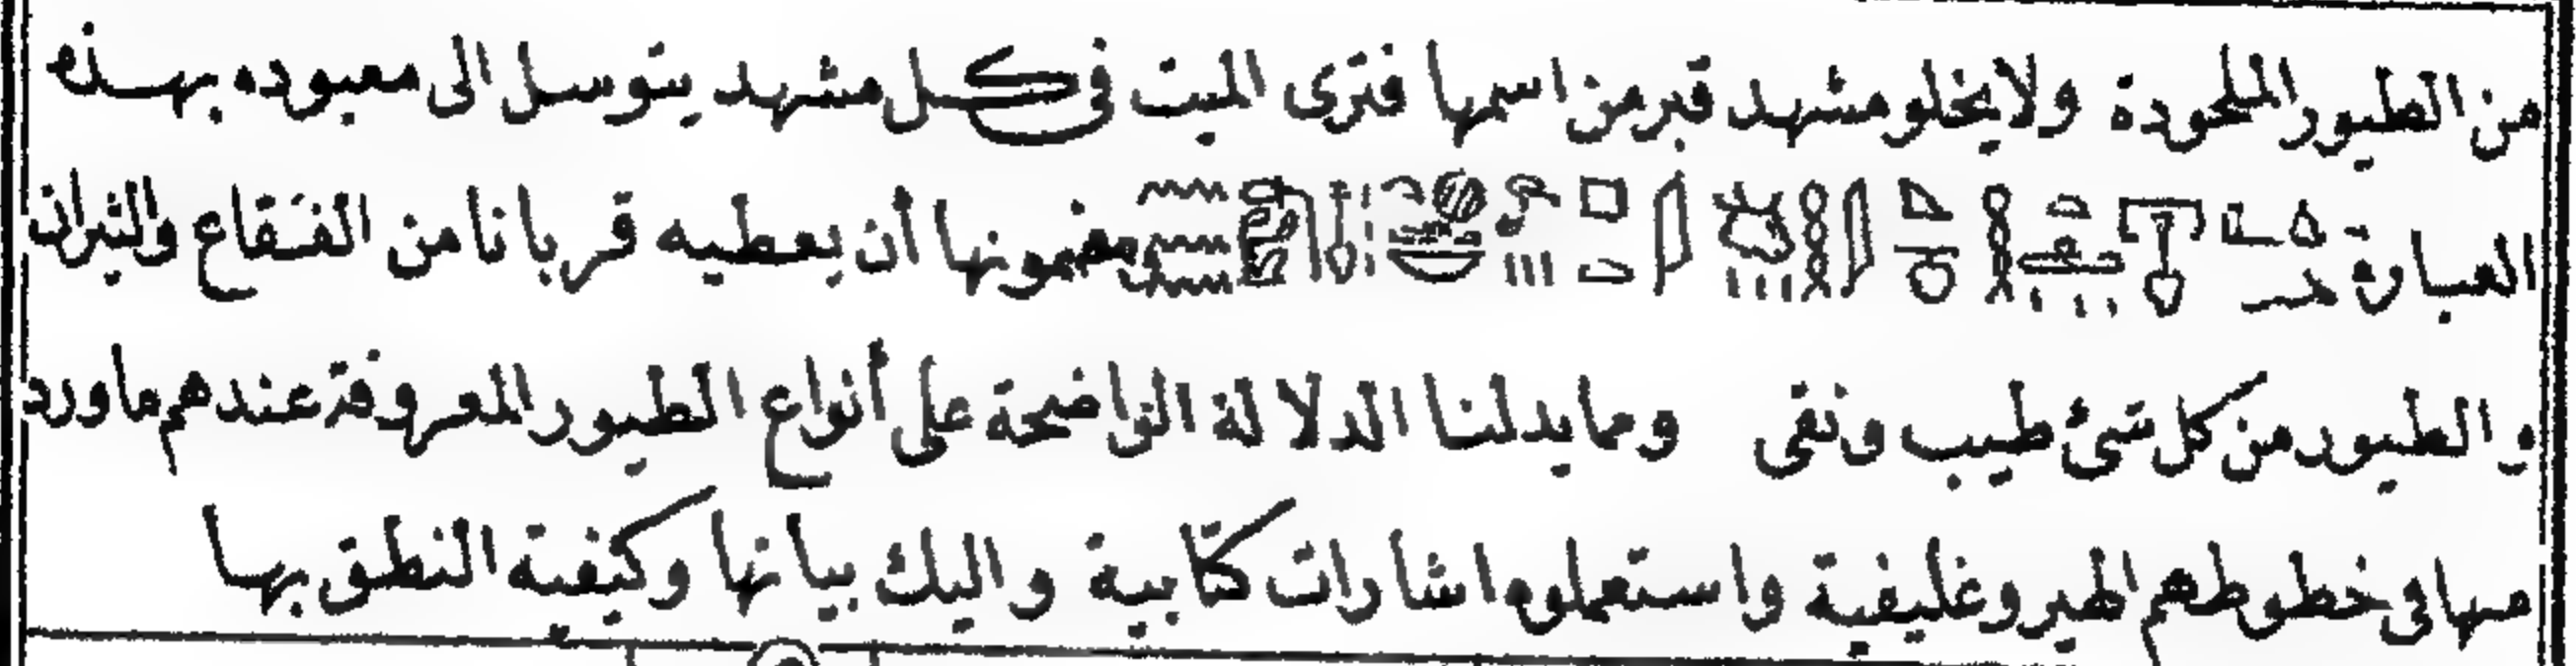 من الطيور الملحودة ولا يخلو مشهد قبر من اسمها فترى الميت في كل مشهد يتوسل الى معبوده بهذه
العبارة مضمونها أن يعطيه قربانا من الفقاع والثيران
والطيور من كل شئ طيب ونقى ومما يدلنا الدلالة الواضحة على أنواع الطيور المعروفة عندهم ما ورد
منها في خطوطهم الهيروغليفية واستعملوه اشارات كتابية واليك بيانها وكيفية النطق بها